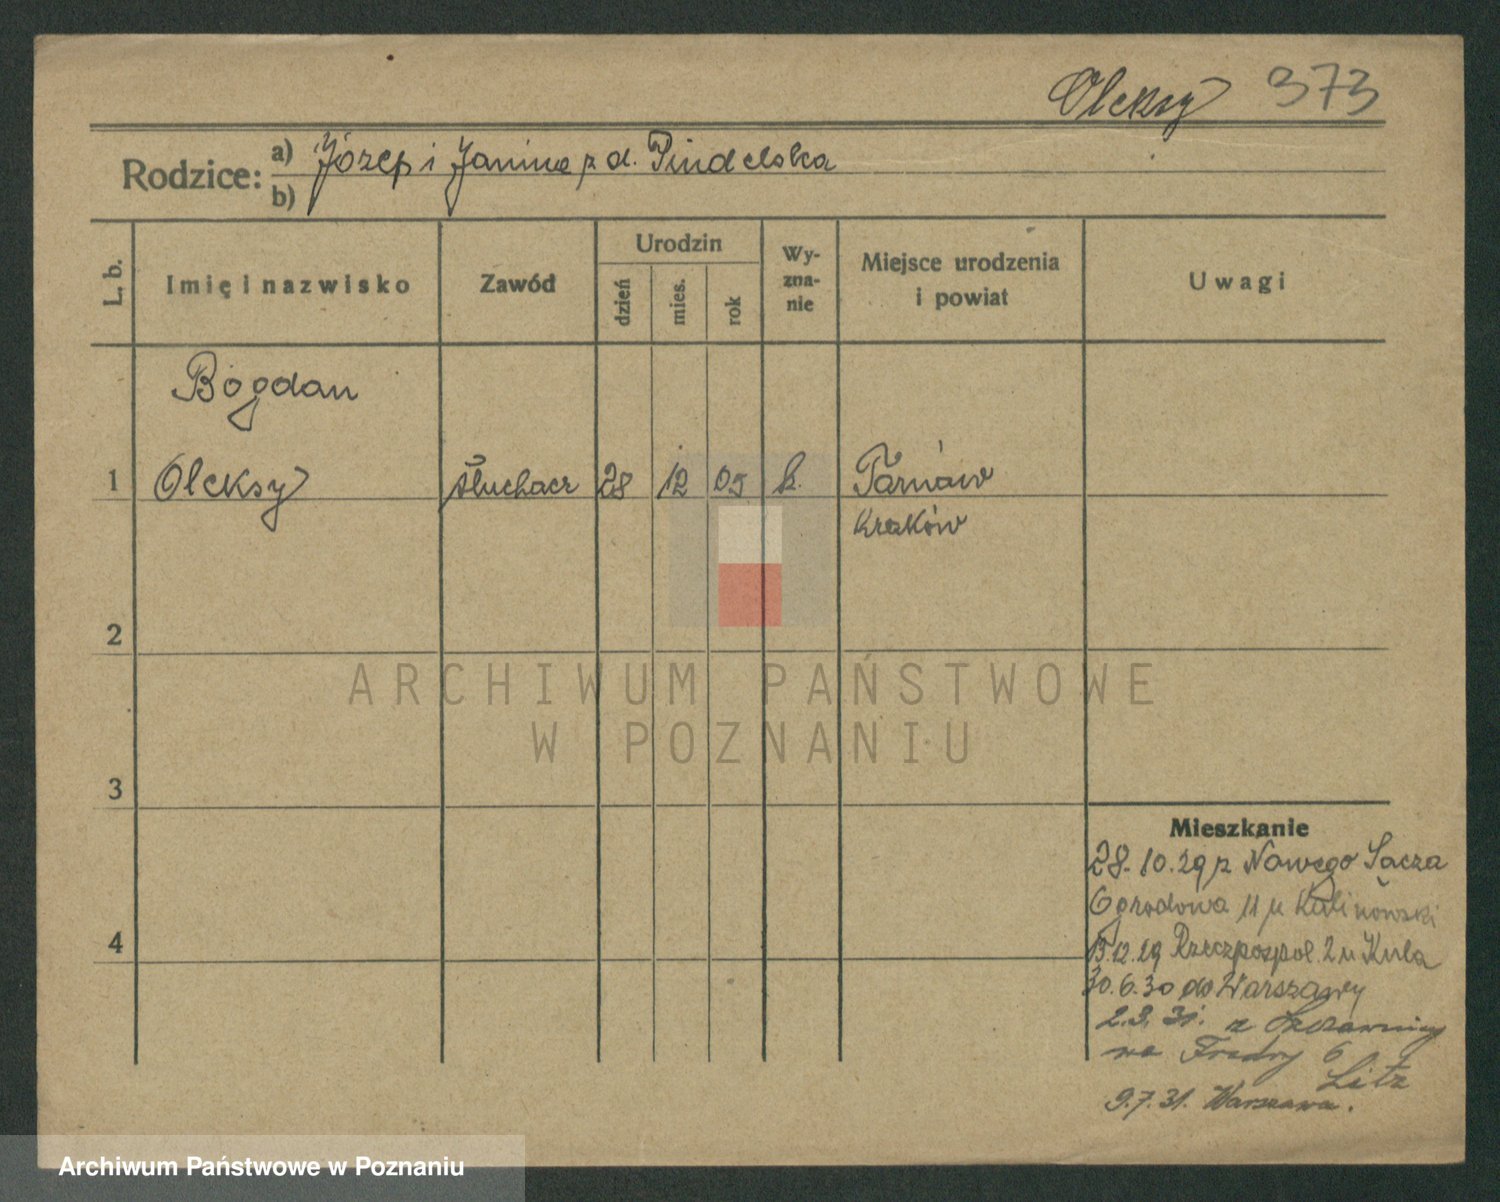 Oleksy 373
Rodzice: a) Józef i Janina z d. Pindelska
b)
L. b.
Imię i nazwisko
Zawód
Urodzin
dzień
mies.
rok
Wy-
zna-
nie
Miejsce urodzenia
i powiat
Uwagi
Bogdan
1 Oleksy słuchacz 28 12 05 k. Tarnów
Kraków
2
3
4
Mieszkanie
28.10.29 z Nowego Sącza
Ogrodowa 11 u Kalinowski
15.12.29 Rzeczpospol. 2 u Kula
30.6.30 do Warszawy
2.3.31. z Szczawnicy
na Fredry 6
Litz
9.7.31. Warszawa.
ARCHIWUM PAŃSTWOWE
W POZNANIU
Archiwum Państwowe w Poznaniu